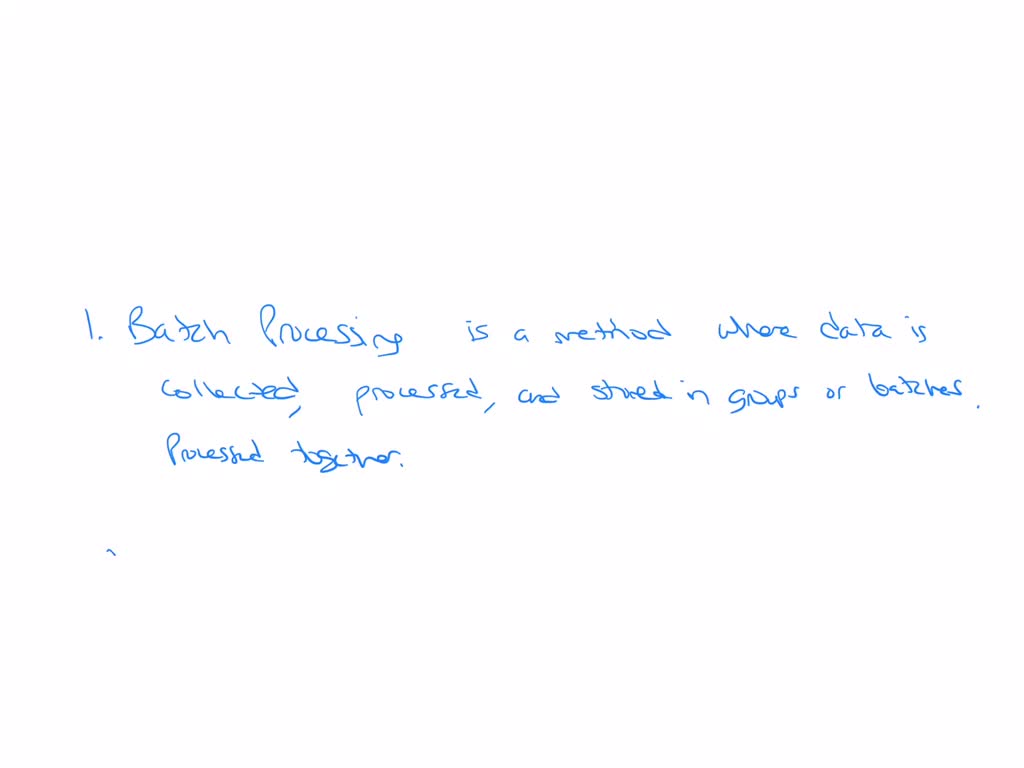 1. Batch Processing is a method where data is
collected, processed, and stored in groups or batches.
Processed together.